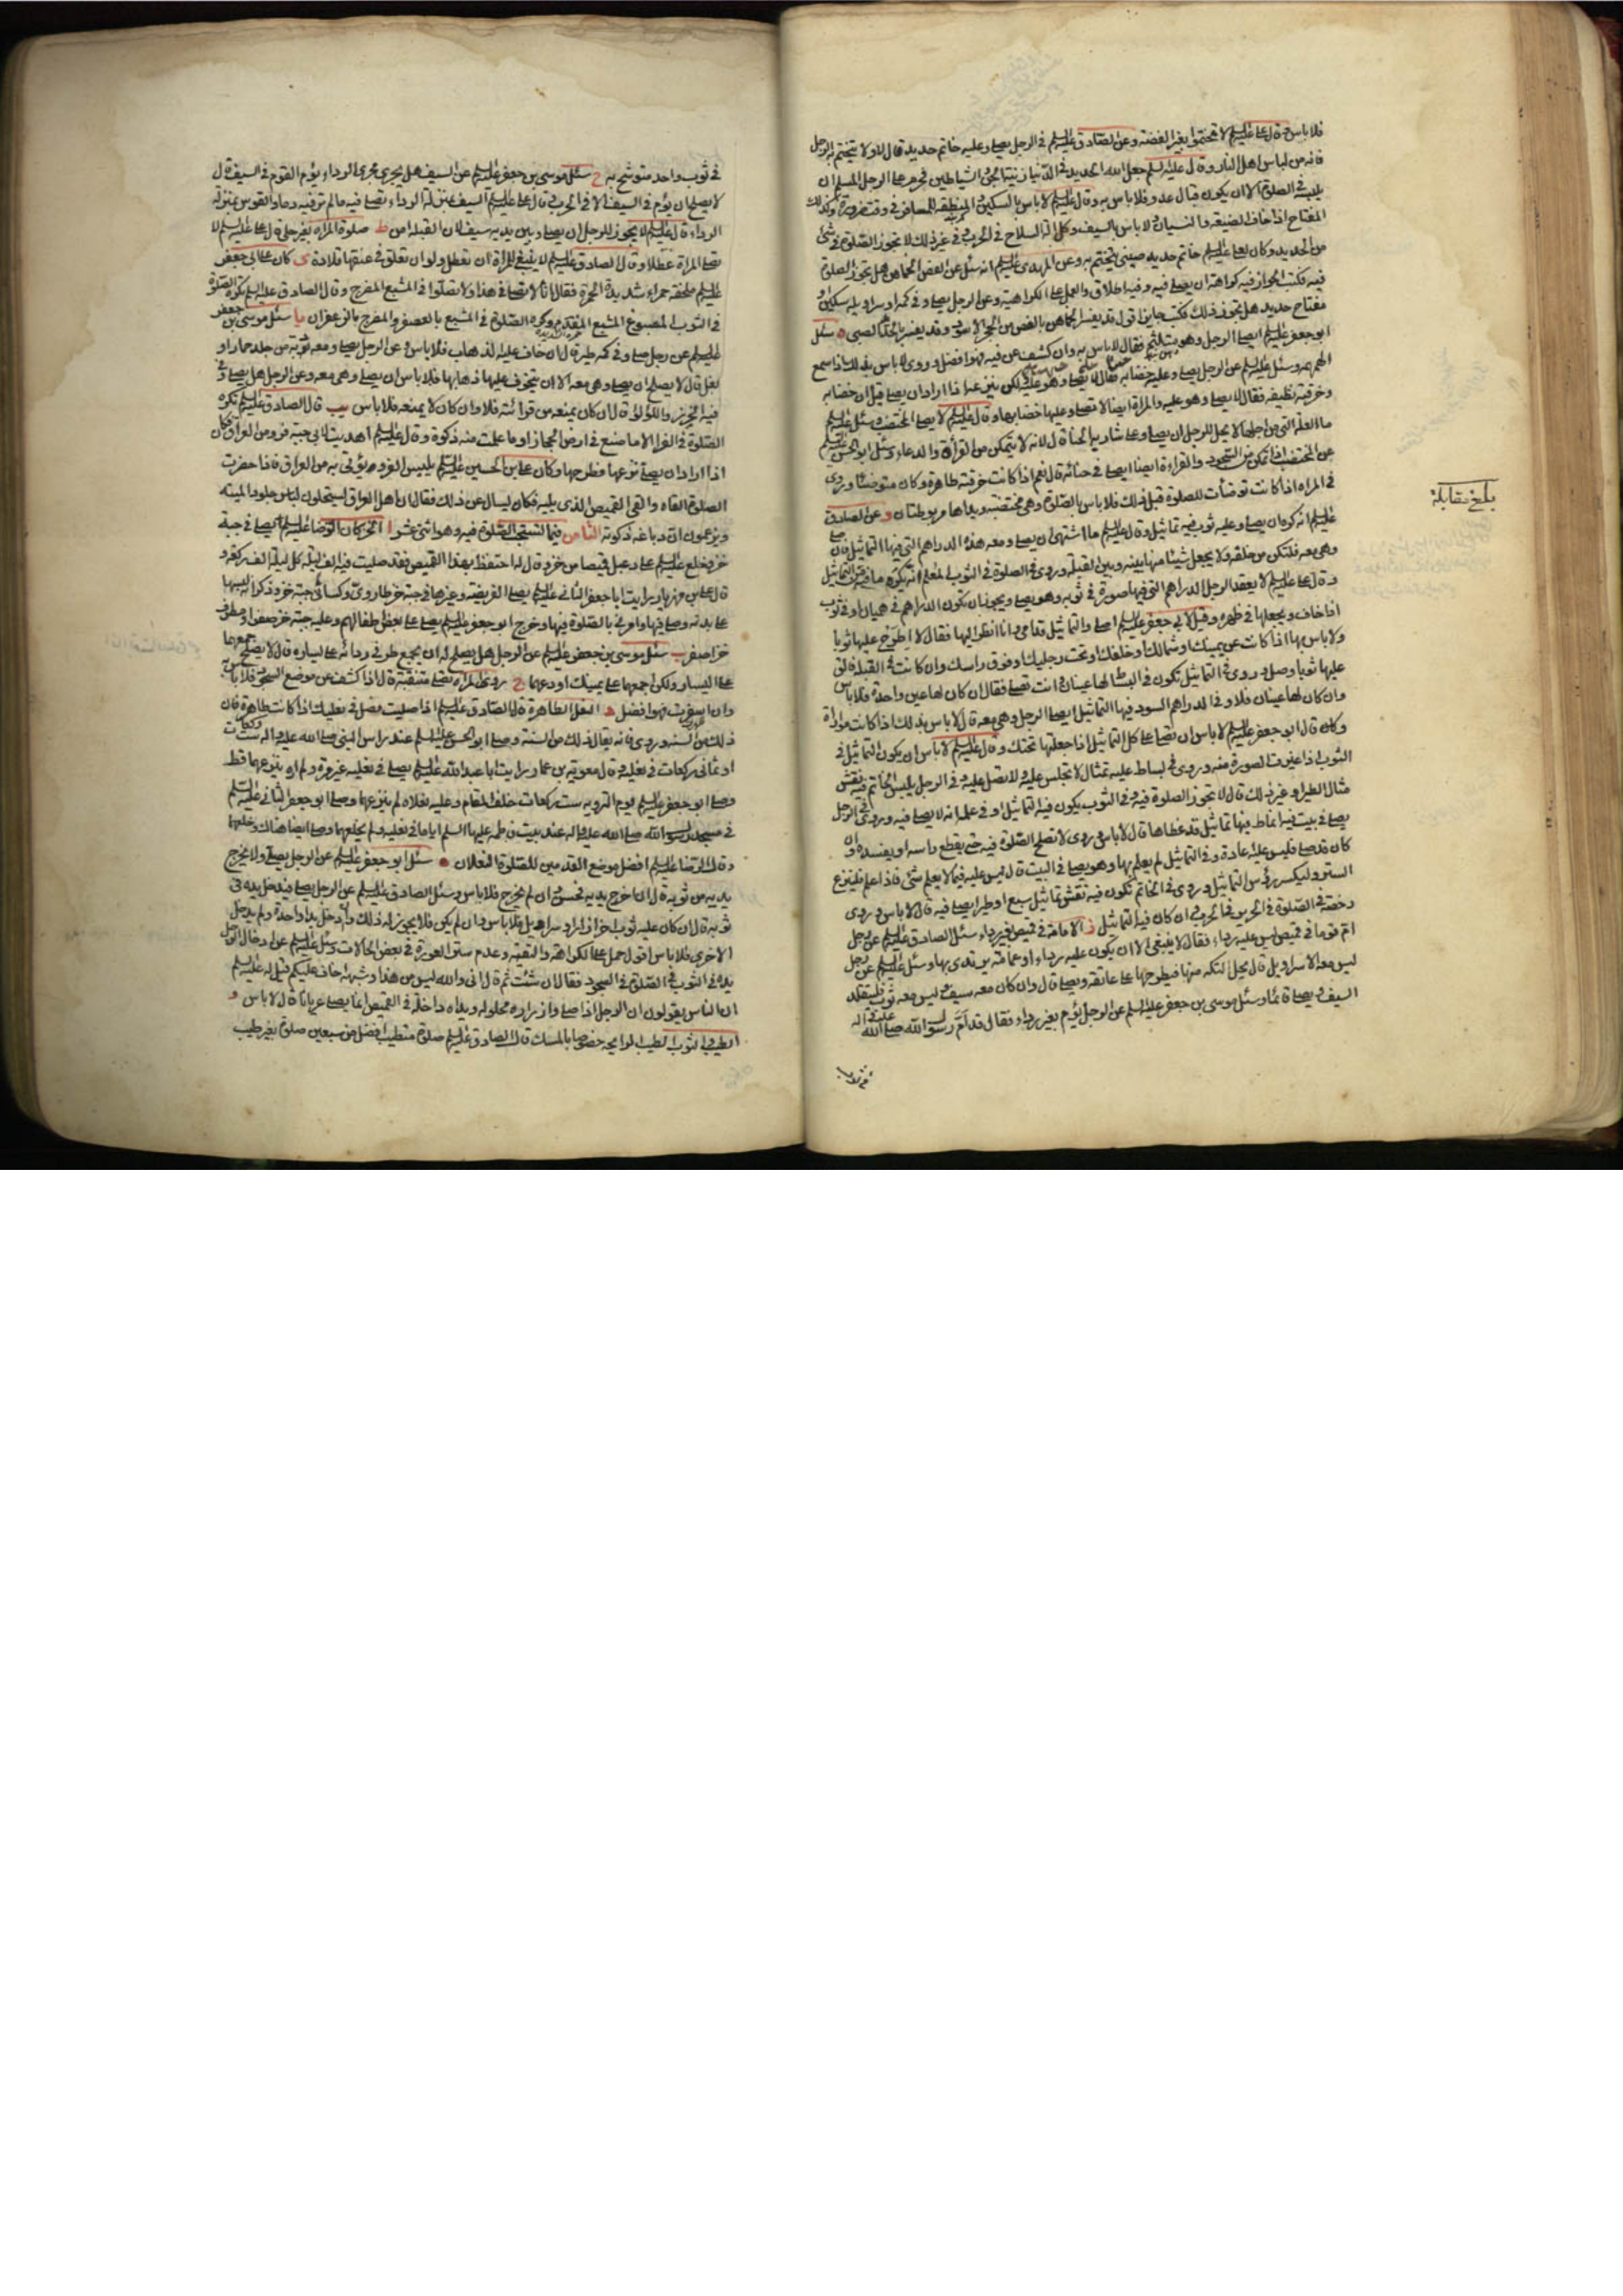 فلا باس وقال علي عليه السلم لا تختموا بغير الفضة وعن الصادق عليه السلم في الرجل يصلي وعليه خاتم حديد قال لا ولا يتختم به الرجل
فانه من لباس اهل النار وقال عليه السلم جعل الله الحديد في الدنيا زينة الجن والشياطين فحرم على الرجل المسلم ان
يلبسه في الصلوة الا ان يكون قبال عدو فلا باس به وقال عليه السلم لا باس بالسكين والمنطقة للمسافر في وقت ضرورة وكذلك
المفتاح اذا خاف الضيعة والنسيان ولا باس بالسيف وكل الة السلاح في الحرب وفي غير ذلك لا تجوز الصلوة في شئ
من الحديد وكان لعلي عليه السلم خاتم حديد صيني يتختم به وعن المهدي عليه السلم انه سئل عن الفص الخماهن هل تجوز الصلوة
فيه فكتب الجواز فيه كراهة ان يصلي فيه وفيه اطلاق والعمل على الكراهية وعن الرجل يصلي وفي كمه او سراويله سكين او
مفتاح حديد هل يجوز ذلك فكتب جايز اقول قد يفسر الخماهن بالفص من الحجر الاسود وقد يفسر بالحديد الصيني ه سئل
ابو جعفر عليه السلم ايصلي الرجل وهو متلثم فقال لا باس به وان كشف عن فيه فهو افضل وروي لا باس بذلك اذا سمع
الهمهمة وسئل عليه السلم عن الرجل يصلي وعليه خضابه فقال لا يصلي وهو عليه ولكن ينزعه اذا اراد ان يصلي قيل ان خضابه
وخرقته نظيفة فقال لا يصلي وهو عليه والمراة ايضا لا تصلي وعليها خضابها وقال عليه السلم لا يصلي المختضب وسئل عليه السلم
ما العلة التي من اجلها لا يحل للرجل ان يصلي وعلى شاربه الحناء قال لانه لا يتمكن من القراءة والدعاء وسئل ابو الحسن عليه السلم
عن المختضب اذا تمكن من السجود والقراءة ايضا ايصلي في حنائه قال نعم اذا كانت خرقته طاهرة وكان متوضئا وروي
في المراة اذا كانت توضأت للصلوة قبل ذلك فلا باس بالصلوة وهي مختضبة ويداها مربوطتان و عن الصادق
عليه السلم انه كره ان يصلي وعليه ثوب فيه تماثيل وقال عليه السلم ما اشتهي ان يصلي ومعه هذه الدراهم التي فيها التماثيل فان صلى
وهي معه فلتكن من خلفه ولا يجعل شيئا منها بينه وبين القبلة وروي في الصلوة في الثوب المعلم انه يكره ما فيه من التماثيل
وقال علي عليه السلم لا يعقد الرجل الدراهم التي فيها صورة في ثوبه وهو يصلي ويجوز ان تكون الدراهم في هميان او في ثوب
اذا خاف ويجعلها في ظهره وقيل لابي جعفر عليه السلم اصلي والتماثيل قدامي وانا انظر اليها فقال لا اطرح عليها ثوبا
ولا باس بها اذا كانت عن يمينك او شمالك او خلفك او تحت رجليك او فوق راسك وان كانت في القبلة فالق
عليها ثوبا وصل وروي في التماثيل تكون في البساط لها عينان وانت تصلي فقال ان كان لها عين واحدة فلا باس
وان كان لها عينان فلا وفي الدراهم السود فيها التماثيل ايصلي الرجل وهي معه قال لا باس بذلك اذا كانت مواراة
وقال ابو جعفر عليه السلم لا باس ان تصلي على كل التماثيل اذا جعلتها تحتك وقال عليه السلم لا باس ان يكون التماثيل في
الثوب اذا غيرت الصورة منه وروي في بساط عليه تمثال لا تجلس عليه ولا تصل عليه وفي الرجل يلبس الخاتم فيه نقش
مثال الطير او غير ذلك قال لا تجوز الصلوة فيه وفي الثوب يكون فيه التماثيل او في علمه انه لا يصلي فيه وروي في الرجل
يصلي في بيت فيه انماط فيها تماثيل قد غطاها قال لا باس وروي لا تصلح الصلوة فيه حتى يقطع راسه او يفسده وان
كان قد صلى فليس عليه عادة وفي التماثيل لم يعلم بها وهو يصلي في البيت قال ليس عليه فيما لا يعلم شئ فاذا علم فلينزع
الستر وليكسر رؤس التماثيل وروي في الخاتم تكون فيه نقش تماثيل سبع او طير ايصلي فيه قال لا باس وروي
رخصة في الصلوة في الحرير في الحرب وان كان فيه التماثيل ز الامامة في قميص بغير رداء سئل الصادق عليه السلم عن رجل
ام قوما في قميص ليس عليه رداء فقال لا ينبغي الا ان يكون عليه رداء او عمامة يرتدي بها وسئل عليه السلم عن رجل
ليس معه الا سراويل قال يحل التكة منها فيطرحها على عاتقه ويصلي قال وان كان معه سيف وليس معه ثوب فليتقلد
السيف ويصلي قائما وسئل موسى بن جعفر عليه السلم عن الرجل يؤم بغير رداء فقال قد ام رسول الله صلى الله عليه واله
في ثوب
بلغ مقابلة
في ثوب واحد متوشح به ح سئل موسى بن جعفر عليه السلم عن السيف هل يجري مجرى الرداء يؤم القوم في السيف قال
لا يصلح ان يؤم في السيف الا في الحرب وقال علي عليه السلم السيف بمنزلة الرداء تصلي فيه ما لم تر فيه دما والقوس بمنزلة
الرداء وقال عليه السلم لا يجوز للرجل ان يصلي وبين يديه سيف لان القبلة امن ط صلوة المراة بغير حلي قال علي عليه السلم لا
تصلي المراة عطلا وقال الصادق عليه السلم لا ينبغي للمراة ان تعطل ولو ان تعلق في عنقها قلادة ي كان على ابي جعفر
عليه السلم ملحفة حمراء شديدة الحمرة فقال انا لا نصلي في هذا ولا تصلوا في المشبع المضرج وقال الصادق عليه السلم تكره الصلوة
في الثوب المصبوغ المشبع المفدم وكره الصلوة في المشبع بالعصفر والمضرج بالزعفران يا سئل موسى بن جعفر
عليه السلم عن رجل صلى وفي كمه طير قال ان خاف عليه الذهاب فلا باس وعن الرجل يصلي ومعه دبة من جلد حمار او
بغل قال لا يصلح ان يصلي وهي معه الا ان يتخوف عليها ذهابها فلا باس ان يصلي وهي معه وعن الرجل هل يصلي وفي
فيه الخرز واللؤلؤ قال ان كان يمنعه من قرائته فلا وان كان لا يمنعه فلا باس يب قال الصادق عليه السلم تكره
الصلوة في الفراء الا ما صنع في ارض الحجاز او ما علمت منه ذكوة وقال عليه السلم اهديت لابي جبة فرو من العراق فكان
اذا اراد ان يصلي نزعها فطرحها وكان علي بن الحسين عليه السلم يلبس الفرو يؤتى به من العراق فاذا حضرت
الصلوة القاه والقى القميص الذي يليه فكان يسال عن ذلك فقال ان اهل العراق يستحلون لباس جلود الميتة
ويزعمون ان دباغه ذكوته الثامن فيما تستحب الصلوة فيه وهو اثنى عشر ا الخز كان الرضا عليه السلم يصلي في جبة
خز وخلع عليه السلم على دعبل قميصا من خز وقال له احتفظ بهذا القميص فقد صليت فيه الف ليلة كل ليلة الف ركعة و
قال علي بن مهزيار رايت ابا جعفر الثاني عليه السلم يصلي الفريضة وغيرها في جبة خز طاروي وكساني جبة خز وذكر انه لبسها
على بدنه وصلى فيها وامرني بالصلوة فيها وخرج ابو جعفر عليه السلم يصلي على بعض اطفالهم وعليه جبة خز صفراء ومطرف
خز اصفر ب سئل موسى بن جعفر عليه السلم عن الرجل هل يصلح له ان يجمع طرفي ردائه على يساره قال لا يصلح جمعهما
على اليسار ولكن اجمعهما على يمينك او دعهما ج روي في المراة تصلي متنقبة قال اذا كشفت عن موضع السجود فلا باس
وان اسفرت فهو افضل د النعل الطاهرة قال الصادق عليه السلم اذا صليت فصل في نعليك اذا كانت طاهرة فان
ذلك من السنة وروي فانه يقال ذلك من السنة وصلى ابو الحسن عليه السلم عند راس النبي صلى الله عليه واله ست ركعات
او ثماني ركعات في نعليه وقال معوية بن عمار رايت ابا عبد الله عليه السلم يصلي في نعليه غير مرة ولم اره ينزعهما قط
وصلى ابو جعفر عليه السلم يوم التروية ست ركعات خلف المقام وعليه نعلاه لم ينزعهما وصلى ابو جعفر الثاني عليه السلم
في مسجد رسول الله صلى الله عليه واله عند بيت فاطمة عليها السلم اياما في نعليه ولم يخلعهما وصلى ايضا هناك وخلعهما
وقال الرضا عليه السلم افضل موضع القدمين للصلوة النعلان ه سئل ابو جعفر عليه السلم عن الرجل يصلي ولا يخرج
يديه من ثوبه قال ان اخرج يديه فحسن وان لم يخرج فلا باس وسئل الصادق عليه السلم عن الرجل يصلي فيدخل يده في
ثوبه قال ان كان عليه ثوب اخر ازار او سراويل فلا باس وان لم يكن فلا يجوز له ذلك وان ادخل يدا واحدة ولم يدخل
الاخرى فلا باس اقول حمل على الكراهة والتقية وعدم ستر العورة في بعض الحالات وسئل عليه السلم عن ادخال الرجل
يده في الثوب في الصلوة في السجود فقال ان شئت ثم قال اني والله ليس من هذا وشبهه اخاف عليكم قيل له عليه السلم
ان الناس يقولون ان الرجل اذا صلى وازراره محلولة ويداه داخلة في القميص انما يصلي عريانا قال لا باس و
الطيب والثوب الطيب الرايحة خصوصا بالمسك قال الصادق عليه السلم صلوة متطيب افضل من سبعين صلوة بغير طيب